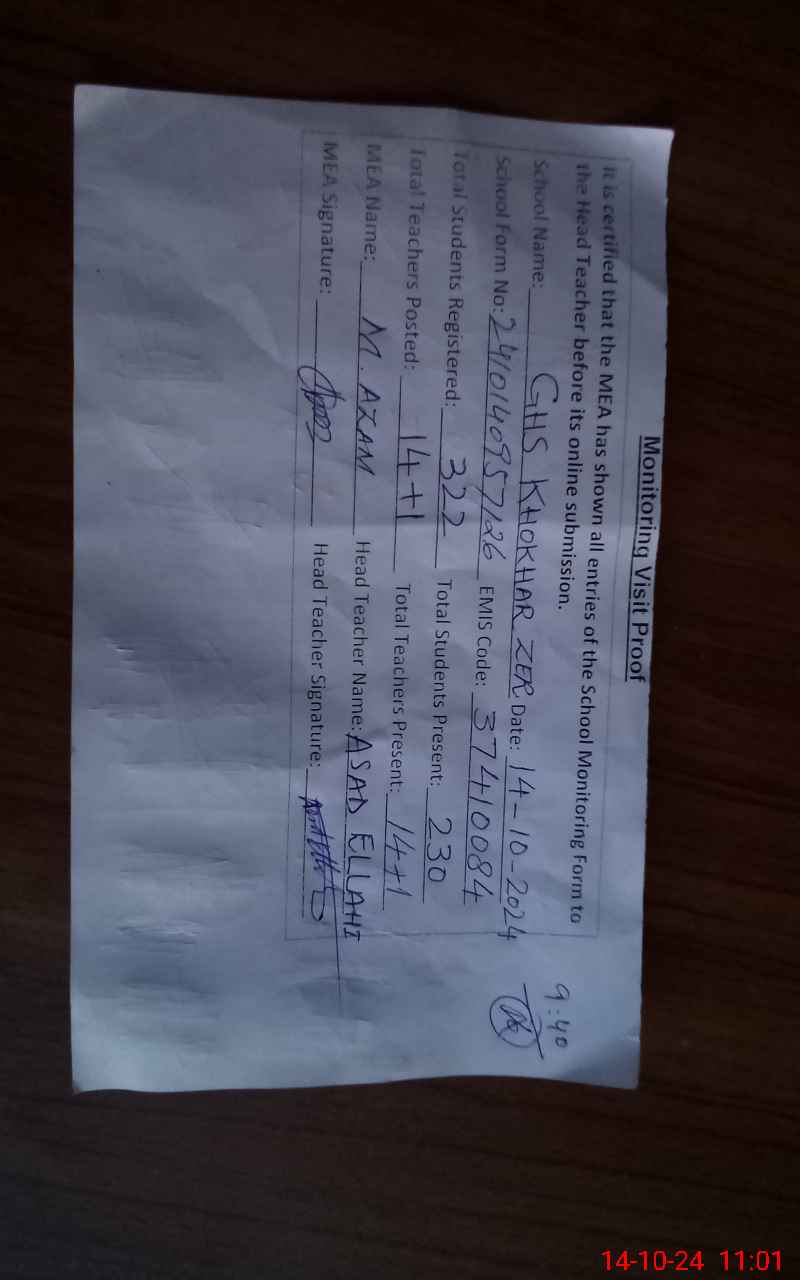 Monitoring Visit Proof
It is certified that the MEA has shown all entries of the School Monitoring Form to
the Head Teacher before its online submission.
School Name: GHS KHOKHAR ZER Date: 14-10-2024
School Form No: 2410140957126 EMIS Code: 37410084
Total Students Registered: 322 Total Students Present: 230
Total Teachers Posted: 14+1 Total Teachers Present: 14+1
MEA Name: M. AZAM Head Teacher Name: ASAD ELLAHI
MEA Signature: Head Teacher Signature:
9:40
14-10-24 11:01